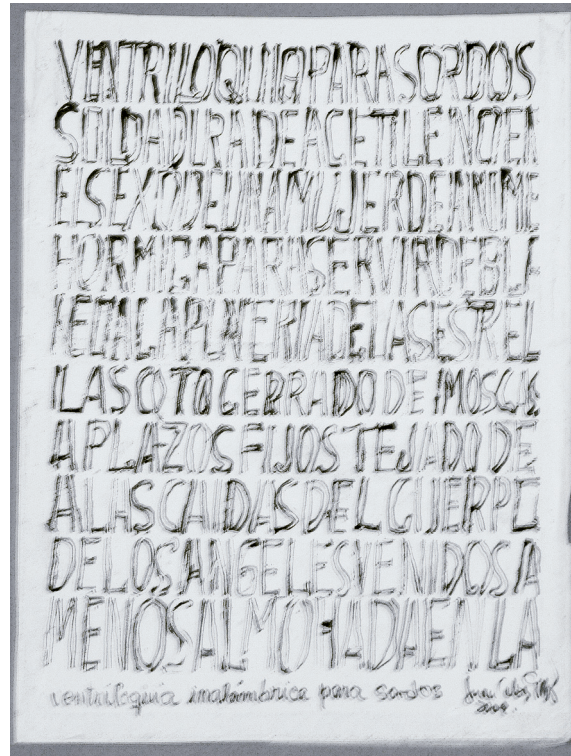 VENTRILOQUIA PARA SORDOS
SOLDADURA DE ACETILENO EN
EL SEXO DE UNA MUJER DE ANIME
HORMIGA PARA SERVIR DE BU
A LA PLATERIA DE LAS ESTREL
LAS COTO CERRADO DE MOSCAS
A PLAZOS FIJOS TEJADO DE
ALAS CAIDAS DEL CUERPO
DE LOS ANGELES VENIDOS A
MENOS ALMOHADA EN LA
ventriloquia inalámbrica para sordos